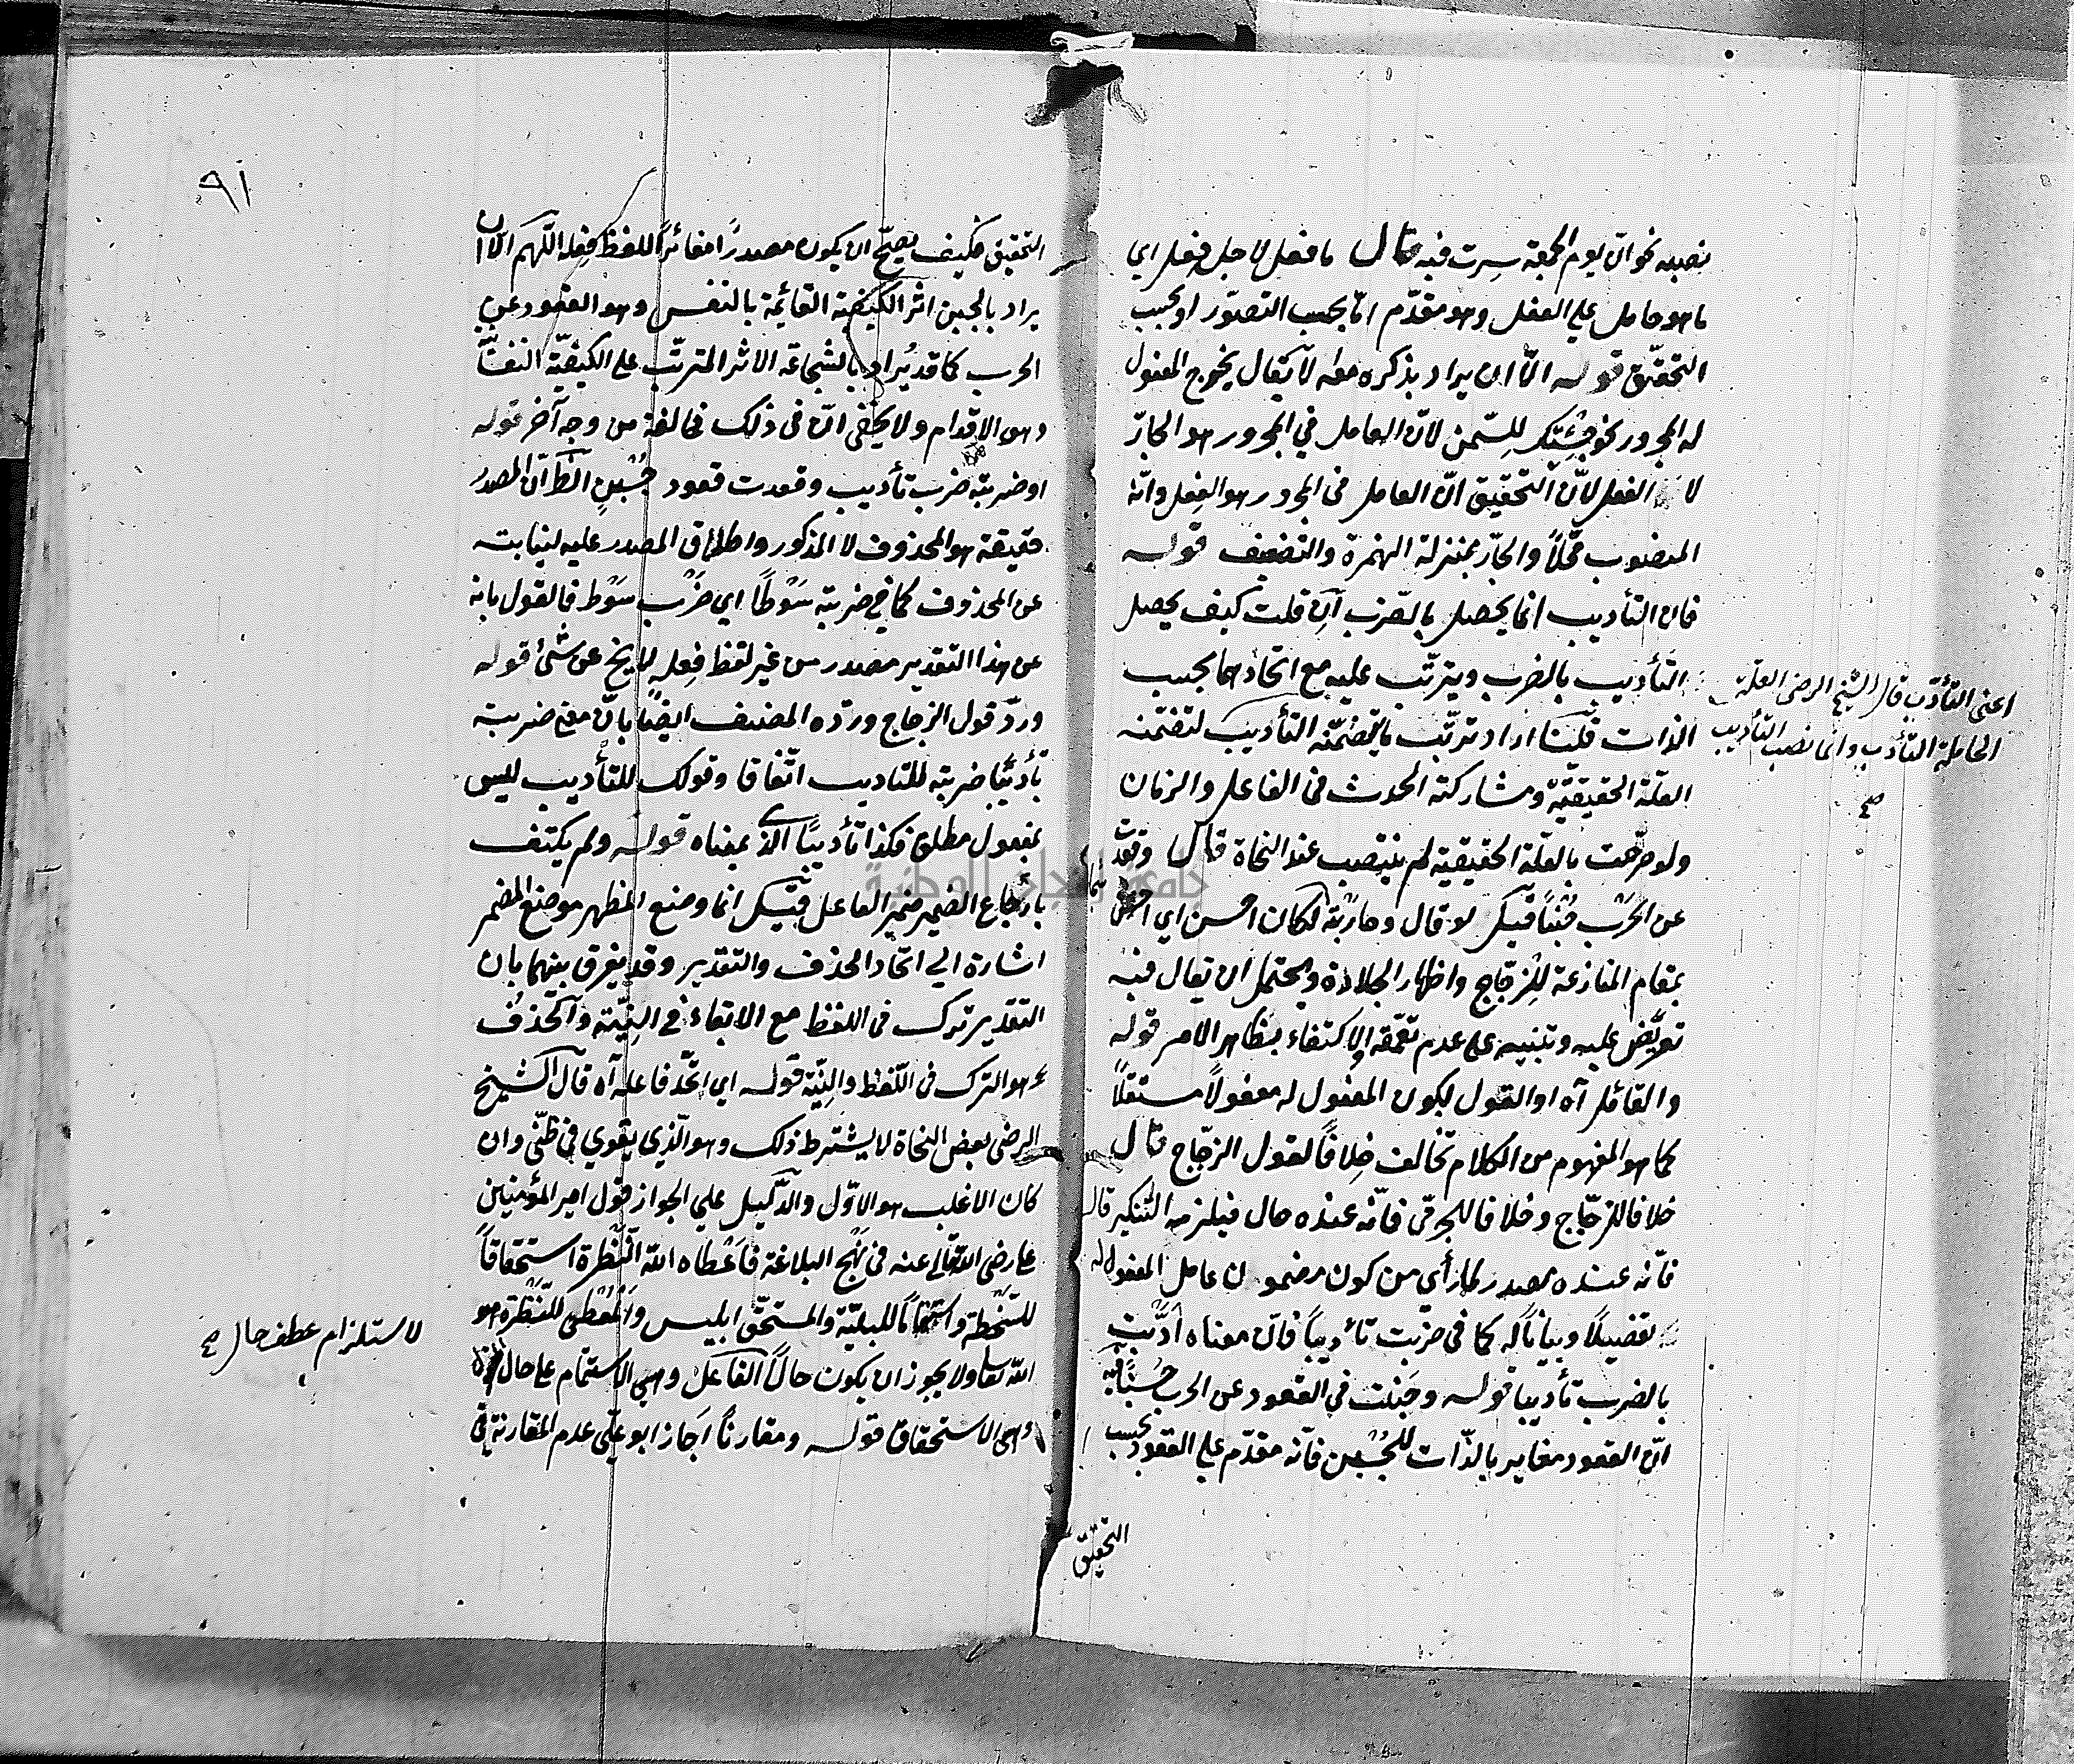 نصبه نحو انّ يوم الجمعة سرت فيه قال ما فعل لاجل فعل اي
ما هو حامل علي الفعل وهو مقدّم امّا بحسب التصوّر او بحسب
التحقّق قوله الّا ان يراد بذكره معه لا يقال يخرج المفعول
له المجرور نحو جئتك للسّمن لانّ العامل في المجرور هو الجارّ
لا الفعل لانّ التحقيق انّ العامل في المجرور هو الفعل وانّه
المنصوب محلّاً والجارّ بمنزلة الهمزة والتضعيف قوله
فان التأديب انما يحصل بالضّرب آن قلت كيف يحصل
التأديب بالضرب ويترتّب عليه مع اتحادهما بحسب
الذات قلنا اراد ترتّب ما يتضمّنه التأديب لتضمّنه
العلّة الحقيقيّة ومشاركته الحدث في الفاعل والزمان
ولو صرّحت بالعلة الحقيقية لم ينتصب عند النحاة قال وقعدت
عن الحَرْب جُبْناً قيل لو قال وحاربته لكان احسن اي
بمقام المنازعة للزجّاج واظهار الجلادة ويحتمل ان يقال فيه
تعريض عليه وتنبيه علي عدم تعمّقه والاكتفاء بظاهر الامر قوله
والقائل آه او القول بكون المفعول له معمولاً مستقلّاً
كما هو المفهوم من الكلام تخالف خِلافاً لقول الزجّاج قال
خلافا للزجّاج وخلافا للجرمّى فانّه عنده حال فيلزمه التّنكير قال
فانّه عنده مصدر لما رأى من كون مضمون عامل المفعول له
تفصيلاً وبياناً له كما في ضربت تأديباً فانّ معناه ادّبت
بالضرب تأديبا قوله وجَبنت في القعود عن الحرب جُبْناً فيه
انّ القعود مغاير بالذّات للجُبْن فانّه مقدّم علي القعود بحسب
التحقيق
اعنى التأدّب قال الشيخ الرضى العلة
الحاملة التأدب وانما نصب التأديب
صح
٩١
التحقيق فكيف يصحّ ان يكون مصدرًا مغائراً للفظ فِعله اللّهم الّا ان
يراد بالجبن اثر الكيفيّة القائمة بالنفس وهو القعود عن
الحرب كما قد يُراد بالشجاعة الاثر المترتّب على الكيفيّة
وهو الاقدام ولا يخفى انّ فى ذلك مخالفة من وجه آخر قوله
او ضربته ضرب تأديب وقعدت قعود جُبْنٍ الظ انّ المصدر
حقيقة هو المحذوف لا المذكور واطلاق المصدر عليه لنيابته
عن المحذوف كما في ضربته سَوْطاً اي ضَرْب سَوْط فالقول بانه
عن هذا التقدير مصدر من غير لفظ فِعله لا يخ عن شئ قوله
وردّ قول الزجاج وردّه المصنف ايضًا بانّ معنى ضربته
تأديبًا ضربته للتاديب اتّفاقا وقولك للتأديب ليس
بمفعول مطلق فكذا تأديبًا الذي بمعناه قوله ولم يكتف
بارجاع الضمير ضمير الفاعل قيل انما وضع المظهر موضع المضمر
اشارة الي اتحاد الحذف والتقدير وقد يفرق بينهما بان
التقدير ترك فى اللفظ مع الابقاء في النِيّة وآلحذفُ
هو الترك فى اللّفظ والنيّة قوله اي اتّحد فاعله آه قال الشيخ
الرضى بعض النحاة لا يشترط ذلك وهو الّذي يقوي فى ظنّى وان
كان الاغلب هو الاوّل والدّليل علي الجواز قول امير المؤمنين
علي رضى الله تعالى عنه فى نَهْج البلاغة فاَعْطاه الله النَّظرة استحقاقاً
للسَّخطة واستتماماً للبليّة والمستحقّ ابليس والمُعْطى للنَّظرة هو
الله تعالى ولا يجوز ان يكون حالاً الفاعل وهي الاستتمام على حال
وهى الاستحقاق قوله ومقارناً اَجَاز ابو علّى عدم المقارنة في
لاستلزام عطف حال صح